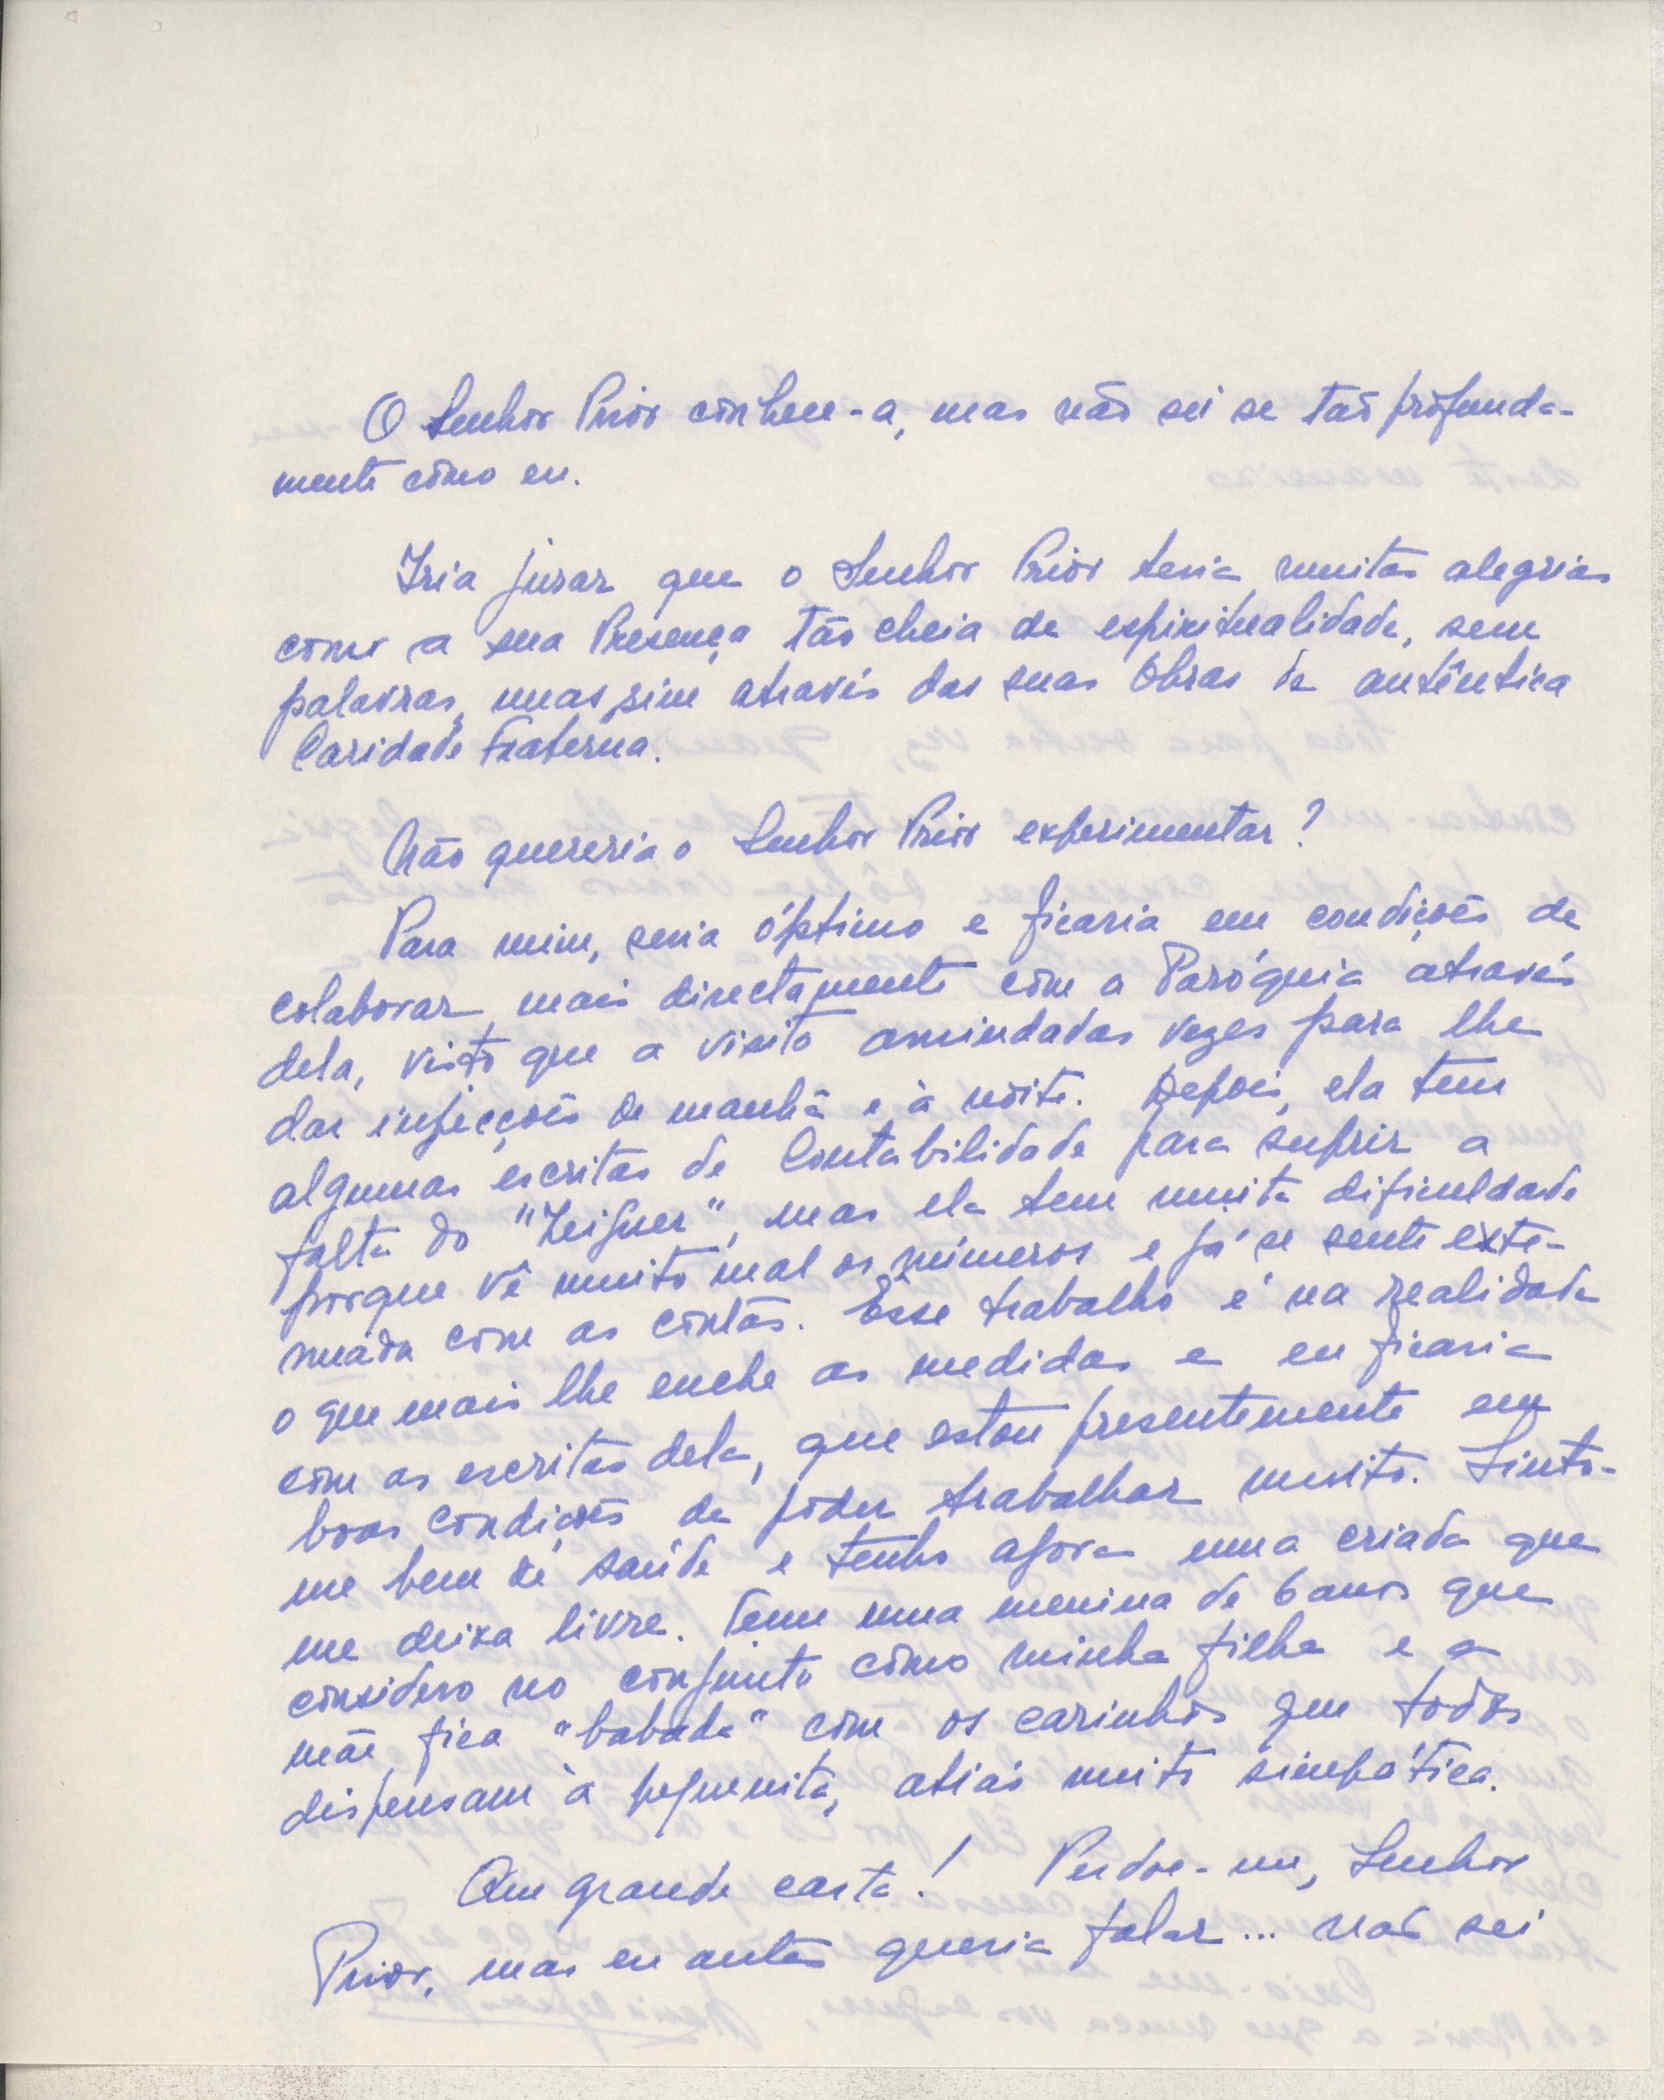 O Senhor Prior conhece-a, mas não sei se tão profunda-
mente como eu.
Iria jurar que o Senhor Prior teria muitas alegrias
como a sua Presença tão cheia de espiritualidade, sem
palavras, mas sim através das suas Obras de autêntica
Caridade Fraterna.
Não quereria o Senhor Prior experimentar?
Para mim, seria óptimo e ficaria em condições de
colaborar mais directamente com a Paróquia através
dela, visto que a visito amiudadas vezes para lhe
dar injecções de manhã e à noite. Depois, ela tem
algumas escritas de Contabilidade para suprir a
falta do "Zeiguer", mas ela tem muita dificuldade
porque vê muito mal os números e já se sente exte-
nuada com as contas. Esse trabalho é na realidade
o que mais lhe enche as medidas e eu ficaria
com as escritas dela, que estou presentemente em
boas condições de poder trabalhar muito. Sinto-
me bem de saúde e tenho agora uma criada que
me deixa livre. Tem uma menina de 6 anos que
considero no conjunto como minha filha e a
mãe fica "babada" com os carinhos que todos
dispensam à pequenita, aliás muito simpática.
Que grande carta! Perdoe-me, Senhor
Prior, mas eu antes queria falar... não sei